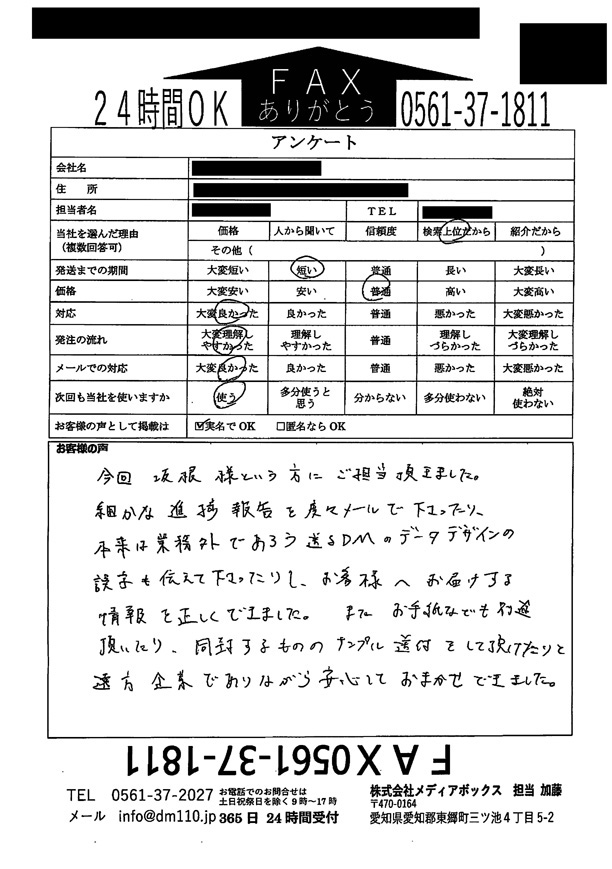 FAX
ありがとう
24時間OK 0561-37-1811
アンケート
会社名
住 所
担当者名 TEL
当社を選んだ理由 (複数回答可) 価格 人から聞いて 信頼度 検索上位だから 紹介だから
その他 ( )
発送までの期間 大変短い 短い 普通 長い 大変長い
価格 大変安い 安い 普通 高い 大変高い
対応 大変良かった 良かった 普通 悪かった 大変悪かった
発注の流れ 大変理解しやすかった 理解しやすかった 普通 理解しづらかった 大変理解しづらかった
メールでの対応 大変良かった 良かった 普通 悪かった 大変悪かった
次回も当社を使いますか 使う 多分使うと思う 分からない 多分使わない 絶対使わない
お客様の声として掲載は ☑実名でOK □匿名ならOK
お客様の声
今回 坂根 様という方に ご担当頂きました。
細かな 進捗 報告 を 度々メールで 下さったり、
本来は業務外であろう送るDMのデータデザインの
誤字も伝えて下さったりし、お客様へ お届けする
情報を正しくできました。 また お手紙なども別途
頂いたり、同封するもののサンプル送付をして頂けたりと
遠方企業でありながら安心しておまかせできました。
FAX0561-37-1811
TEL 0561-37-2027 お電話でのお問合せは 土日祝祭日を除く9時〜17時
メール info@dm110.jp 365日 24時間受付
株式会社メディアボックス 担当 加藤
〒470-0164
愛知県愛知郡東郷町三ツ池4丁目5-2